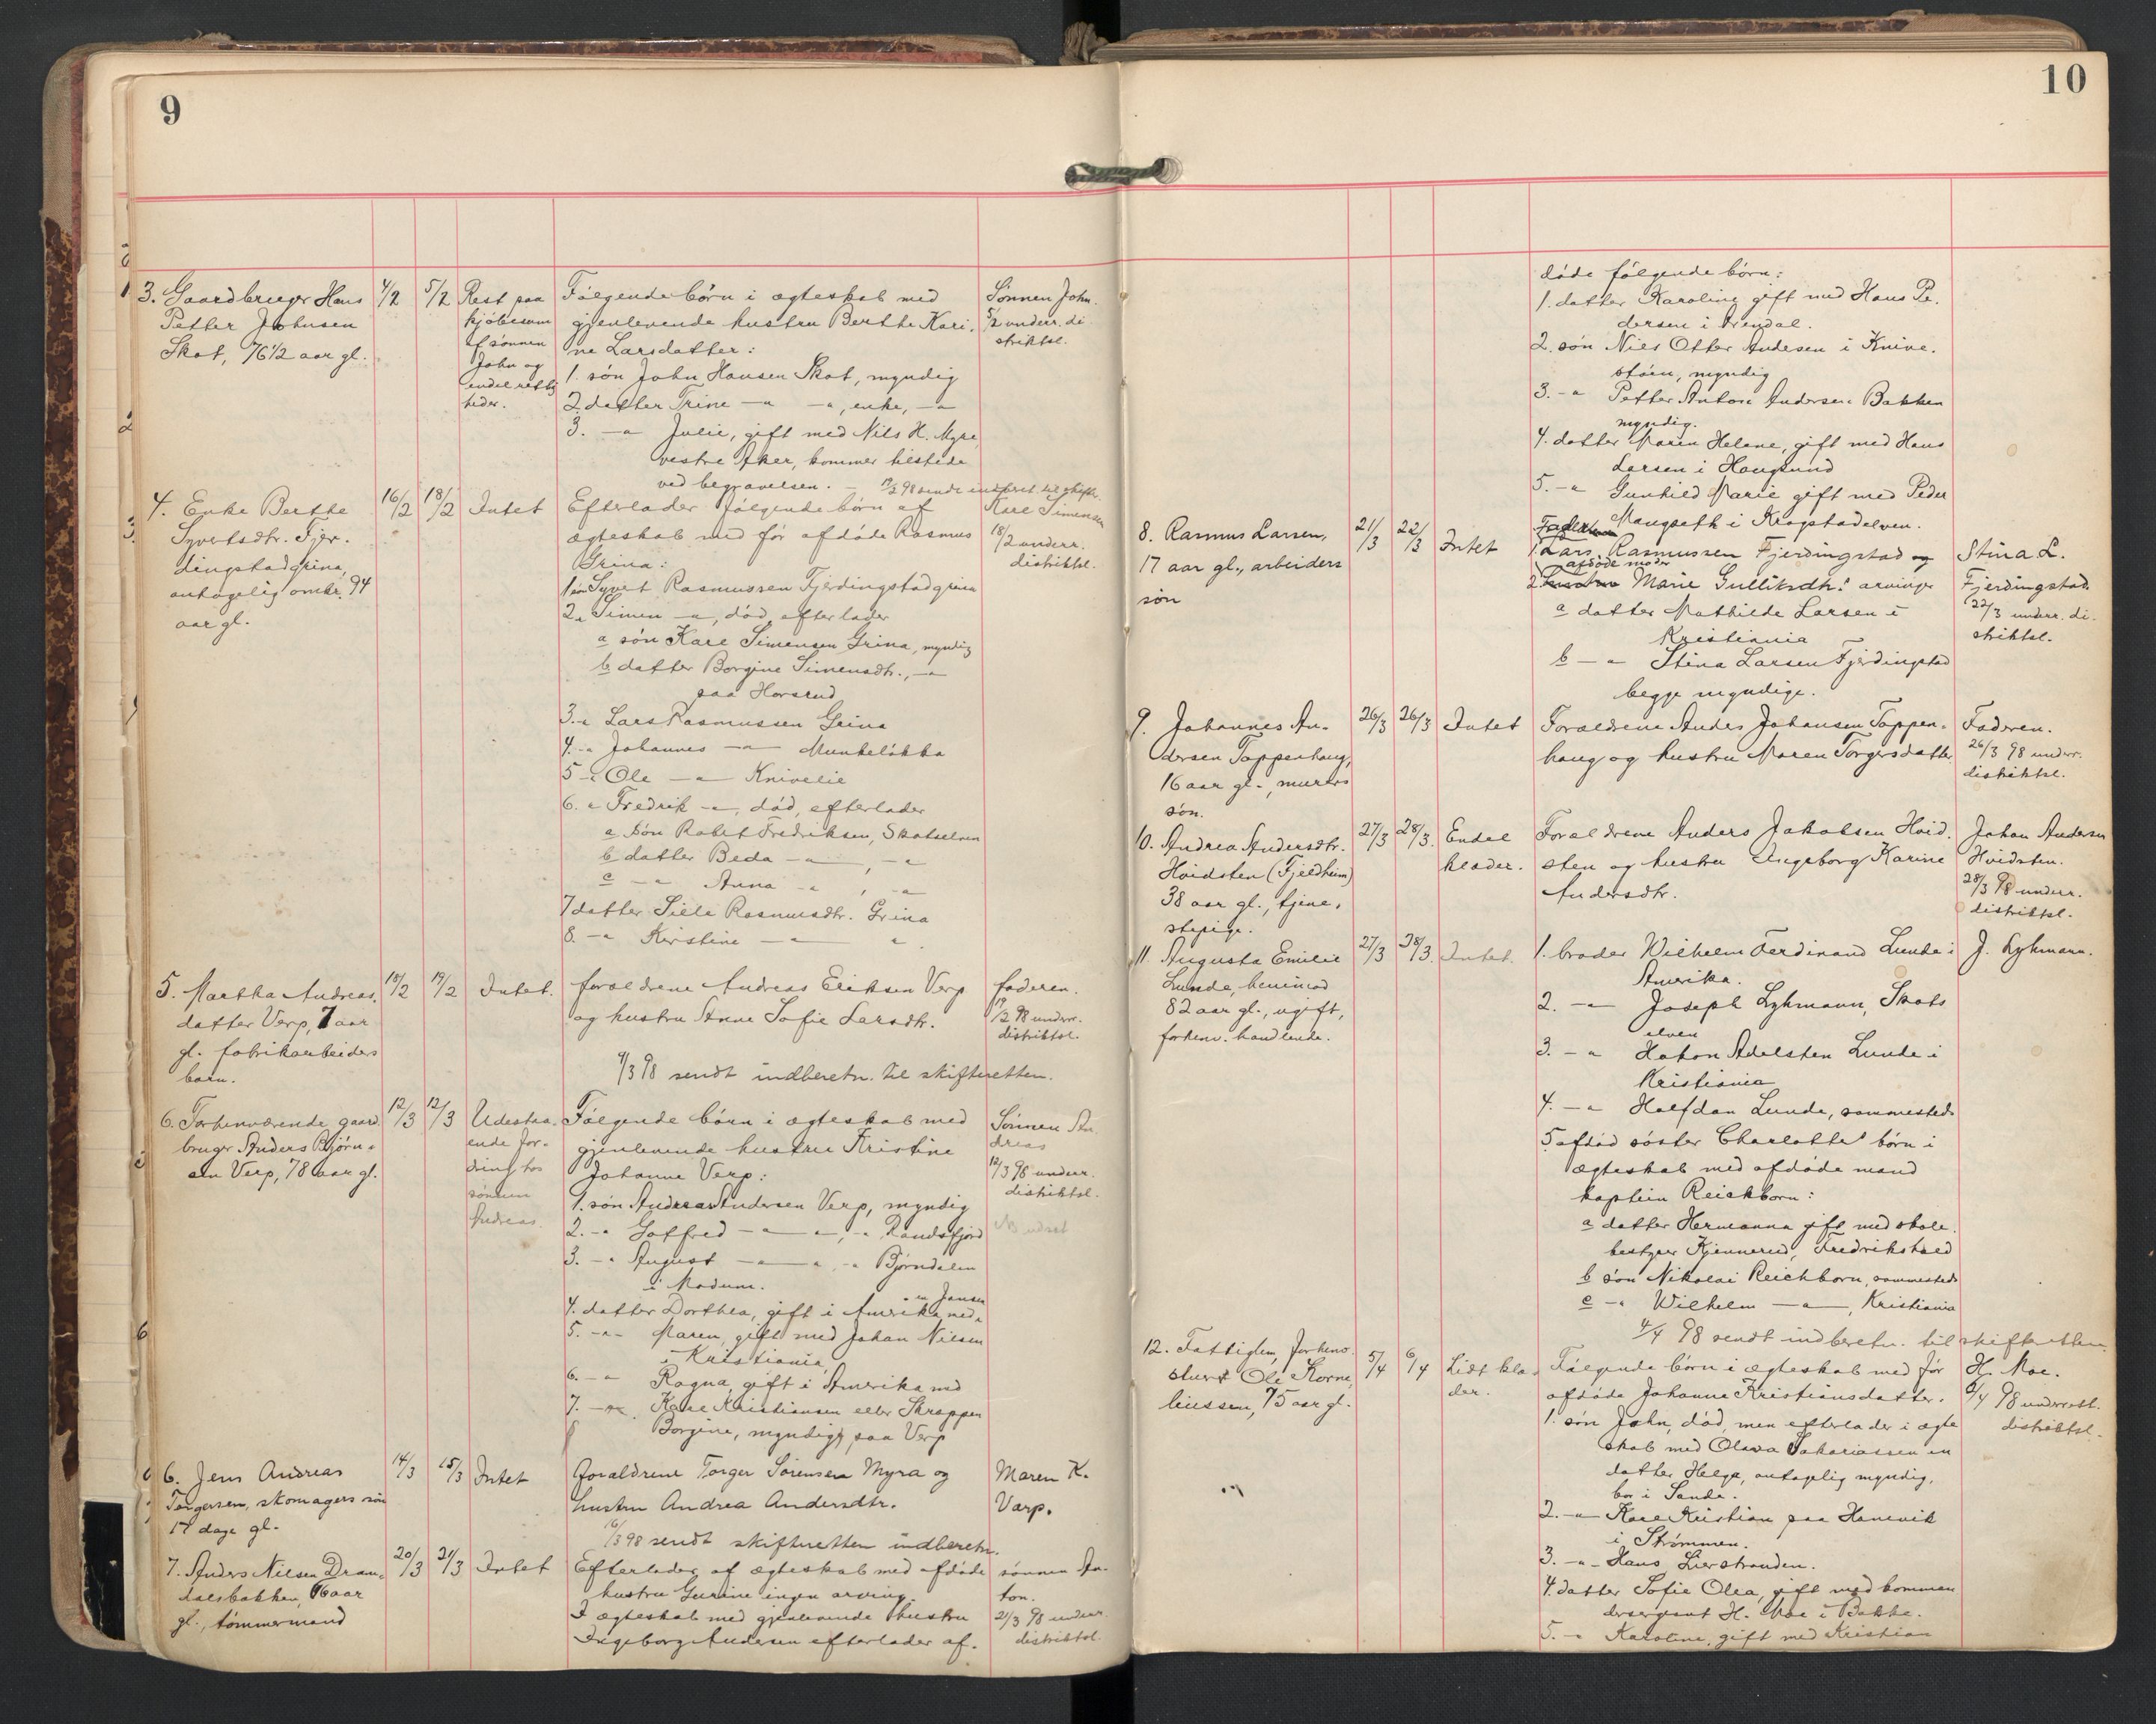 9
3. Gaardbruger Hans
Petter Johnsen
Skot, 76 1/2 aar gl.
4/2
5/2
Rest paa
kjøbesum
af sønnen
John og
endel rettig
heder.
Følgende børn i ægteskab med
gjenlevende hustru Berthe Kari-
ne Larsdatter:
1. søn John Hansen Skot, myndig
2. datter Trine -"- -", enke, -"
3. -" Julie, gift med Nils H. Myre
vestre Aker, kommer tilstede
ved begravelsen. -
Sønnen John.
5/2 underr. di
striktsl.
4. Enke Berthe
Syvertsdtr. Fjer-
dingstadgrina,
antagelig omkr. 94
aar gl.
16/2
18/2
Intet
Efterlader følgende børn af
ægteskab med før afdøde Rasmus
Grina:
1 søn Syvert Rasmussen Fjerdingstadgrina
2 " Simen -", død, efterlader
a søn Karl Simensen Grina, myndig
b datter Borgine Simensdtr., -"
paa Horsrud
3. -" Lars Rasmussen Grina
4. -" Johannes -" Munkeløkka
5 -" Ole -" Knivelie
6. " Fredrik -", død, efterlader
a søn Robert Fredriksen, Skotselven
b datter Beda -", -"
c -" Anna -", -"
7 datter Sille Rasmusdtr. Grina
8. -" Kirstine -" ".
Karl Simensen
18/2 underr.
distriktsl.
5. Martha Andreas-
datter Verp, 7 aar
gl. fabrikarbeiders
barn.
18/2
19/2
Intet.
forældrene Andreas Eriksen Verp
og hustru Anne Sofie Larsdtr.
faderen.
19/2 98 underr.
distriktsl.
4/3 98 sendt indberetn. til skifteretten.
6. Forhenværende gaard
bruger Anders Bjørn-
sen Verp, 78 aar gl.
12/3
12/3
Udestaa-
ende for-
dring hos
sønnen
Andreas.
Følgende børn i ægteskab med
gjenlevende hustru Kristine
Johanne Verp:
1. søn Andreas Andersen Verp, myndig
2. -" Gotfred -" -", -" Randsfjord
3. -" August -" -" Bjørndalen
i Modum.
4. datter Dorthea, gift i Amerika med
en Jansen
5. -"- Maren, gift med Johan Nilsen
i Kristiania,
6. -" Ragna, gift i Amerika med
Karl Kristiansen eller Skrappen
7. -" Borgine, myndig, paa Verp
Sønnen An-
dreas
12/3 98 underr.
distriktsl.
6. Jens Andreas
Torgersen, skomagers søn
17 dage gl.
14/3
15/3
Intet
Forældrene Torger Sørensen Myra og
hustru Andrea Andersdtr.
Maren K.
Varp.
16/3 98 sendt skifteretten indberetn.
7. Anders Nilsen Dram-
dalsbakken, 76 aar
gl., tømmermand
20/3
21/3
Intet
Efterlader af ægteskab med afdøde
hustru Gurine ingen arving.
I ægteskab med gjenlevende hustru
Ingeborg Andersen efterlader af-
sønnen An-
ton.
21/3 98 underr.
distriktsl.
10
døde følgende børn:
1. datter Karoline gift med Hans Pe-
dersen i Arendal.
2. søn Niels Otter Andersen i Knive-
støen, myndig
3. -" Petter Anton Andersen Bakken
myndig.
4. datter Maren Helene, gift med Hans
Larsen i Haugsund
5. -" Gunhild Marie gift med Peder
Maugseth i Krogstadelven.
8. Rasmus Larsen,
17 aar gl., arbeiders
søn
21/3
22/3
Intet
1. Lars Rasmussen Fjerdingstad og
afdøde moder
2. Marie Gulliksdtr.' arvinger
a datter Mathilde Larsen i
Kristiania
b -" Stina Larsen Fjerdingstad
begge myndige.
Stina L.
Fjerdingstad.
22/3 underr. di-
striktsl.
9. Johannes An-
dersen Tappenhaug,
16 aar gl., murers
søn.
26/3
26/3
Intet
Forældrene Anders Johansen Tappen-
haug og hustru Maren Torgersdatter
Faderen.
26/3 98 underr.
distriktsl.
10. Andrea Andersdtr.
Hvidsten (Fjeldheim)
38 aar gl., tjene-
stepige.
27/3
28/3.
Endel
klæder.
Forældrene Anders Jakobsen Hvid-
sten og hustru Ingeborg Karine
Andersdtr.
Johan Andersen
Hvidsten.
28/3 98 underr.
distriktsl.
11. Augusta Emilie
Lunde, henimod
82 aar gl., ugift,
forhenv. handlende.
27/3
28/3.
Intet.
1. broder Wilhelm Ferdinand Lunde i
Amerika.
2. -" Joseph Lykmann, Skots
elven
3. -" Hakon Adelsten Lunde i
Kristiania
4. -" Halfdan Lunde, sammesteds
5. afdød søster Charlottes børn i
ægteskab med afdøde mand
kaptein Reichborn:
a datter Hermanna gift med skole-
bestyrer Kjennerud, Fredrikshald
b søn Nikolai Reichborn, sammesteds
c -" Wilhelm -", Kristiania
J. Lykmann.
4/4 98 sendt indberetn. til skifteretten.
12. Fattiglem, forhenv.
stuert Ole Korne-
liussen, 75 aar gl.
5/4
6/4
Lidt klæ-
der.
Følgende børn i ægteskab med før
afdøde Johanne Kristiansdatter.
1. søn John, død, men efterlader i ægte
skab med Olava Sakariassen en
datter Helga, antagelig myndig,
bor i Sande.
2. -" Karl Kristian paa Hanevik
i Strømmen.
3. -"- Hans, Lierstranden.
4. datter Sofie Olea, gift med komman
dersergant H. Moe i Bakke.
5. -" Karoline, gift med Kristian
H. Moe.
6/4 98 underrett.
distriktsl.